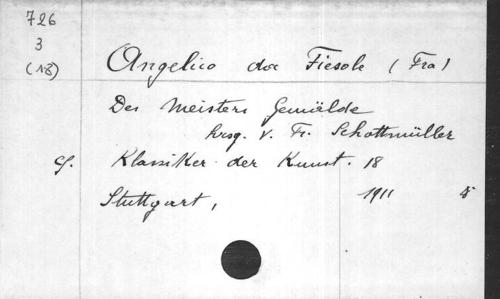 726
3
(18)
Angelico da Fiesole (Fra)
Des Meisters Gemälde
hrsg. v. Fr. Schottmüller
Klassiker der Kunst. 18
Stuttgart, 1911